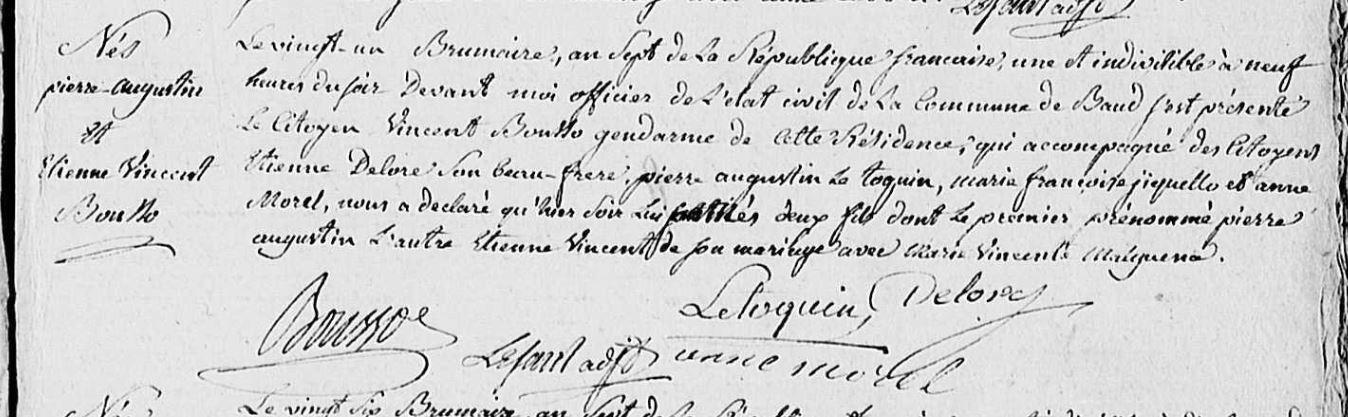 Lefaul adjt
Nés
pierre-augustin
et
Etienne Vincent
Bousso
Le vingt-un Brumaire, an Sept de La République francaise, une et indivisible à neuf
heures du soir Devant moi officier de L'état civil de La Commune de Baud s'est présenté
Le Citoyen Vincent Bousso gendarme de cette Résidence, qui accompagné des Citoyens
Etienne Delore son beau-frere, pierre augustin Le toquin, marie françoise jiquello et anne
Morel, nous a declaré qu'hier soir Lui sont nés deux fils dont Le premier prénommé pierre
augustin L'autre Etienne Vincent de son mariage avec Marie Vincente
Letoquin Delore
Bousso
Lefaul adjt anne morel
Né
Le vingt six Brumaire, an Sept de La République